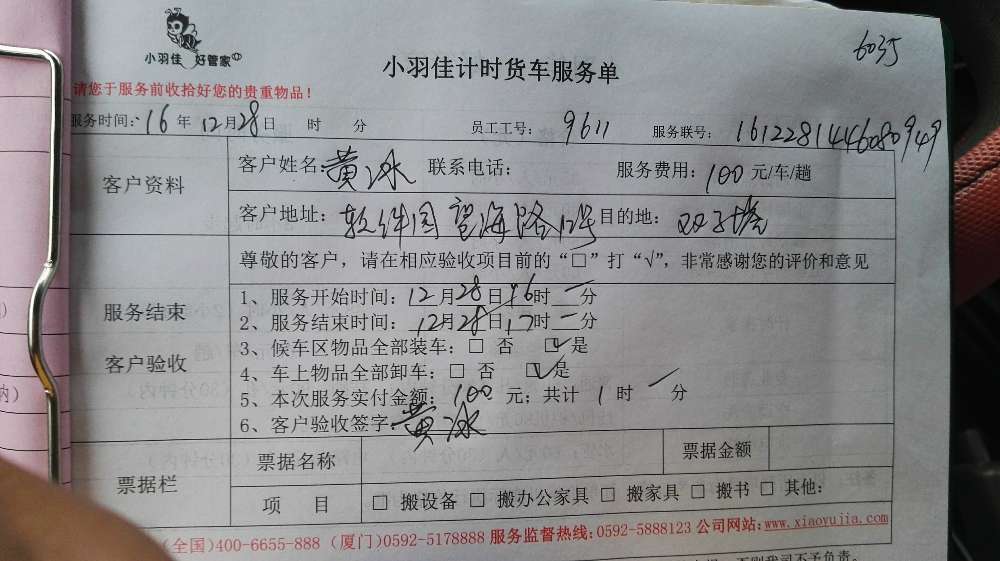 小羽佳 好管家
6035
小羽佳计时货车服务单
请您于服务前收拾好您的贵重物品！
服务时间：16年12月28日 时 分 员工工号：9611 服务联号：161228144608094​9
客户资料
客户姓名：黄冰 联系电话： 服务费用：100元/车/趟
客户地址：软件园望海路12号 目的地：双子塔
服务结束
客户验收
尊敬的客户，请在相应验收项目前的“□”打“√”，非常感谢您的评价和意见
1、服务开始时间：12月28日16时一分
2、服务结束时间：12月28日17时一分
3、候车区物品全部装车：□ 否 ☑ 是
4、车上物品全部卸车：□ 否 ☑ 是
5、本次服务实付金额：100元；共计 1时一分
6、客户验收签字：黄冰
票据栏
票据名称 票据金额
项 目 □ 搬设备 □ 搬办公家具 □ 搬家具 □ 搬书 □ 其他：
(全国)400-6655-888 (厦门)0592-5178888 服务监督热线：0592-5888123 公司网站：www.xiaoyujia.com
否则我司不予负责。